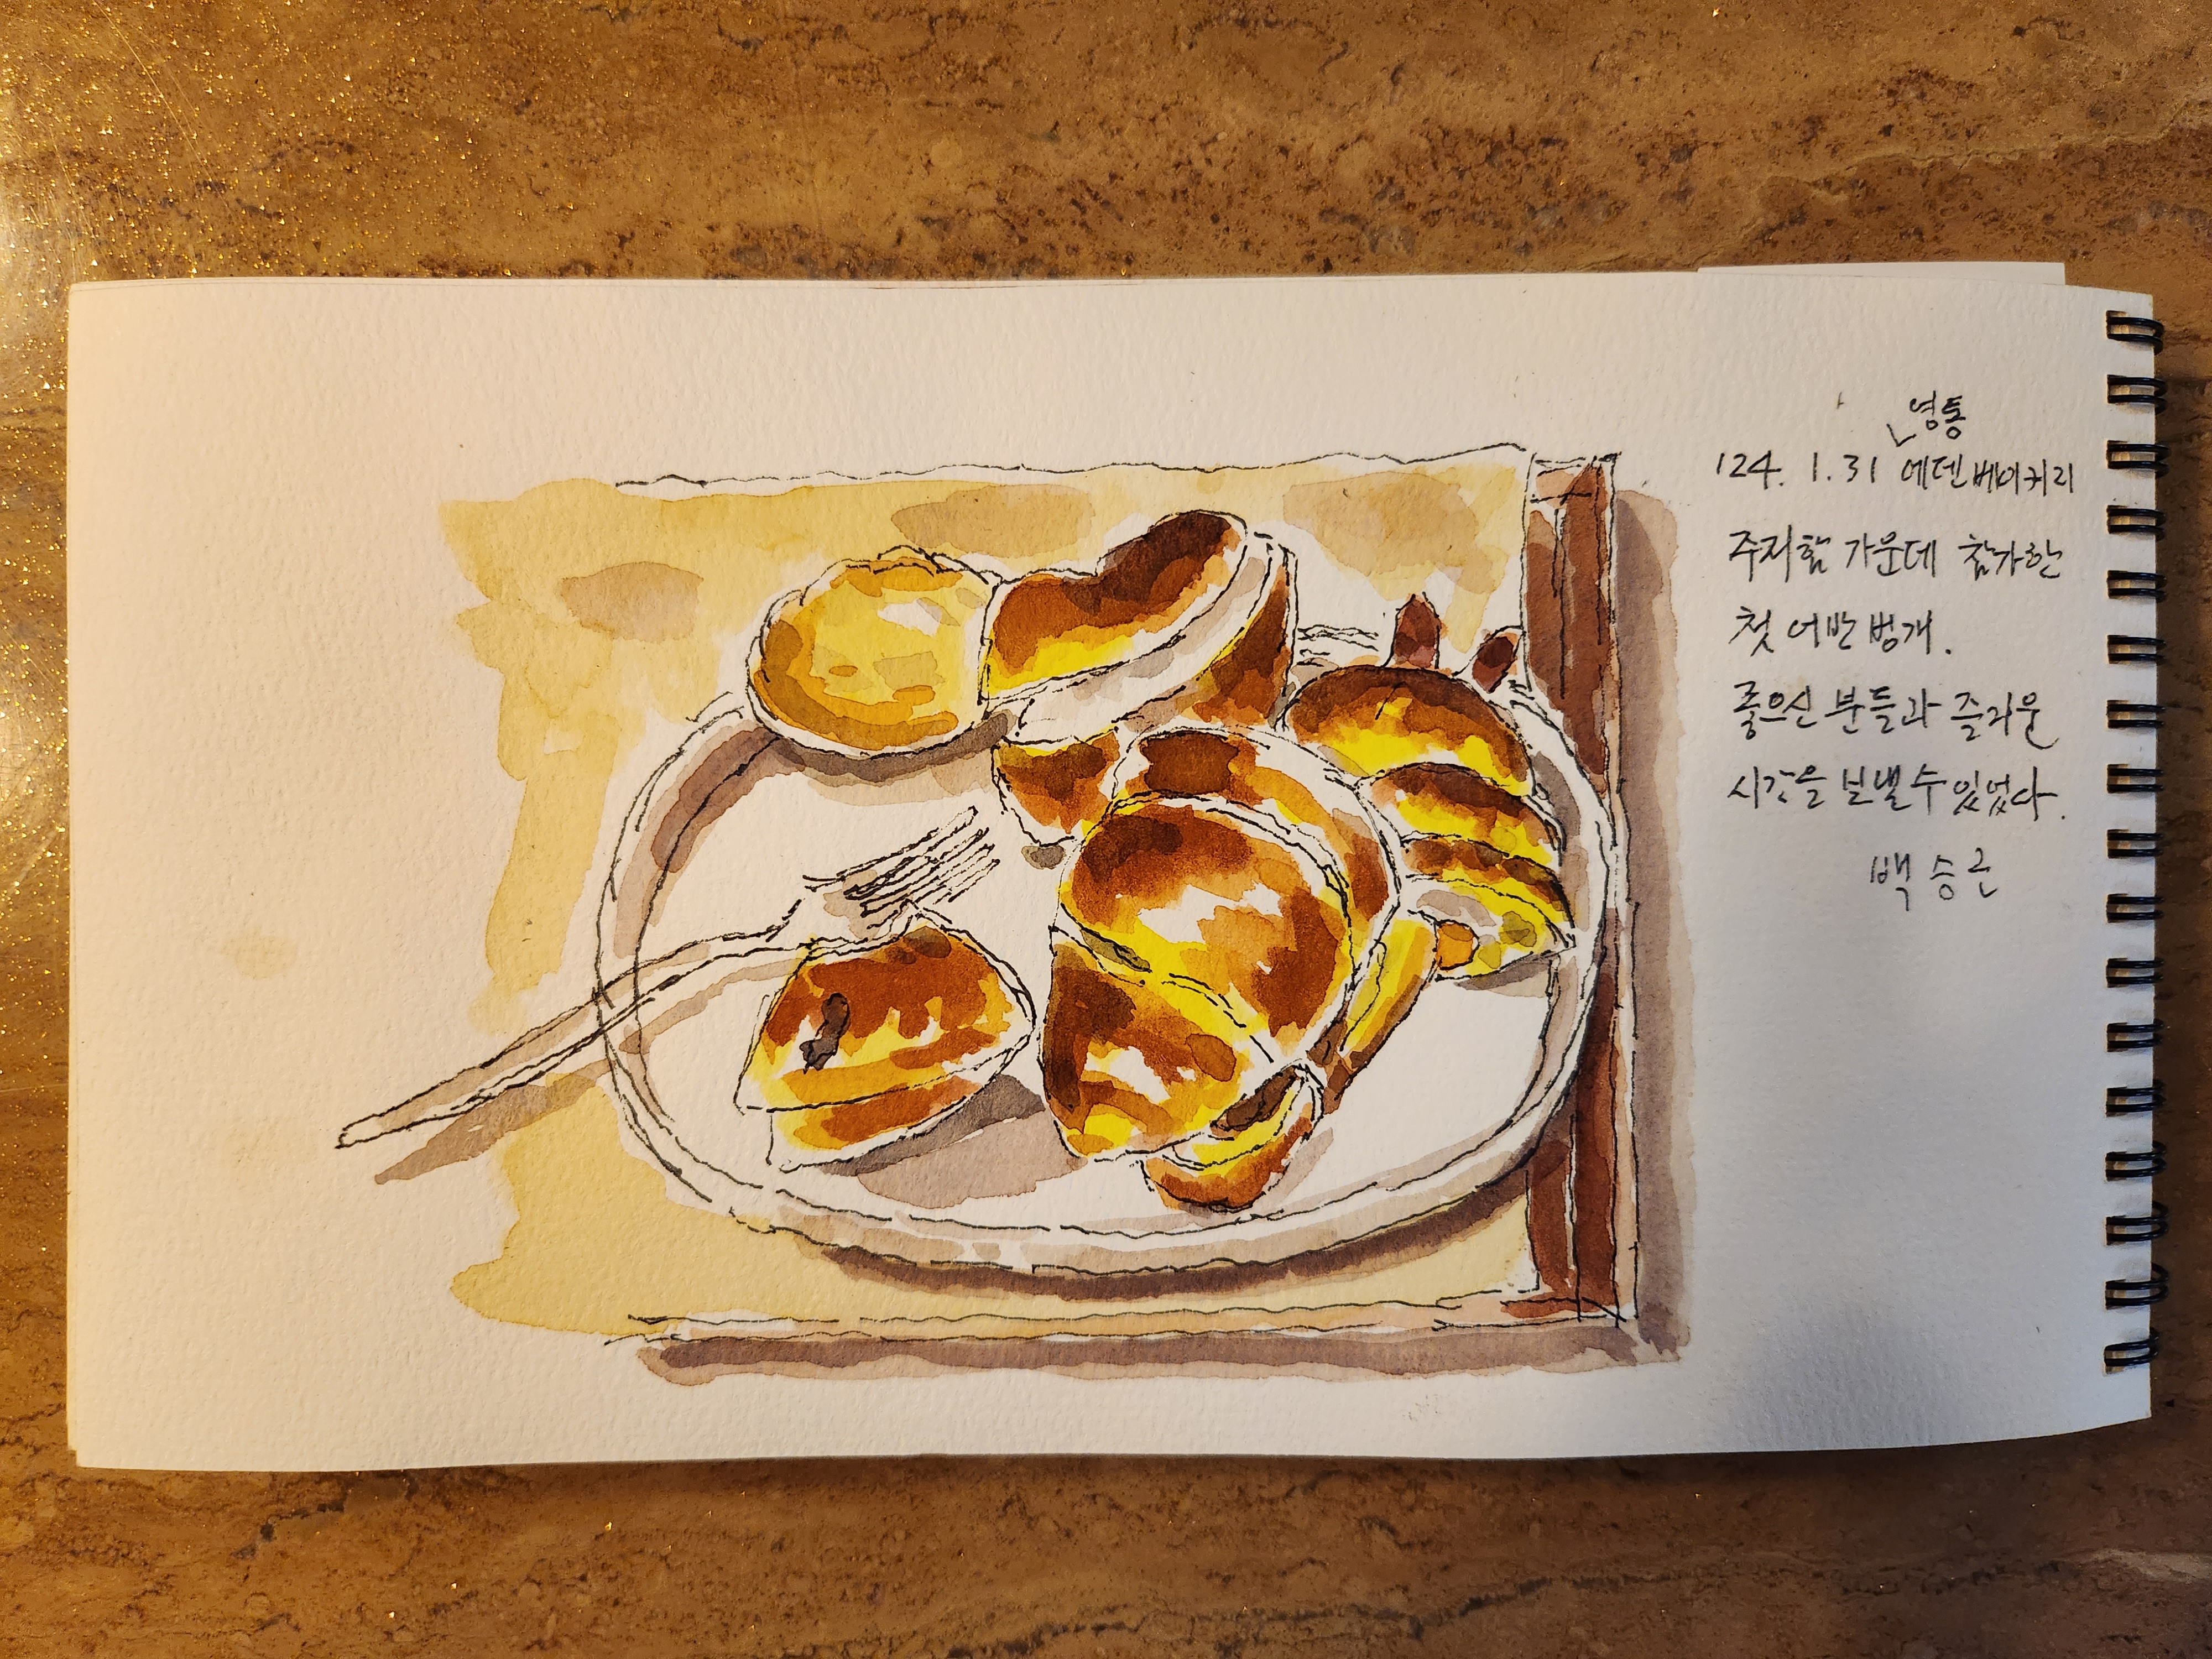 영통
'24. 1. 31 에덴베이커리
주저함 가운데 참가한
첫 어반벙개.
좋으신 분들과 즐거운
시간을 보낼 수 있었다.
백승근